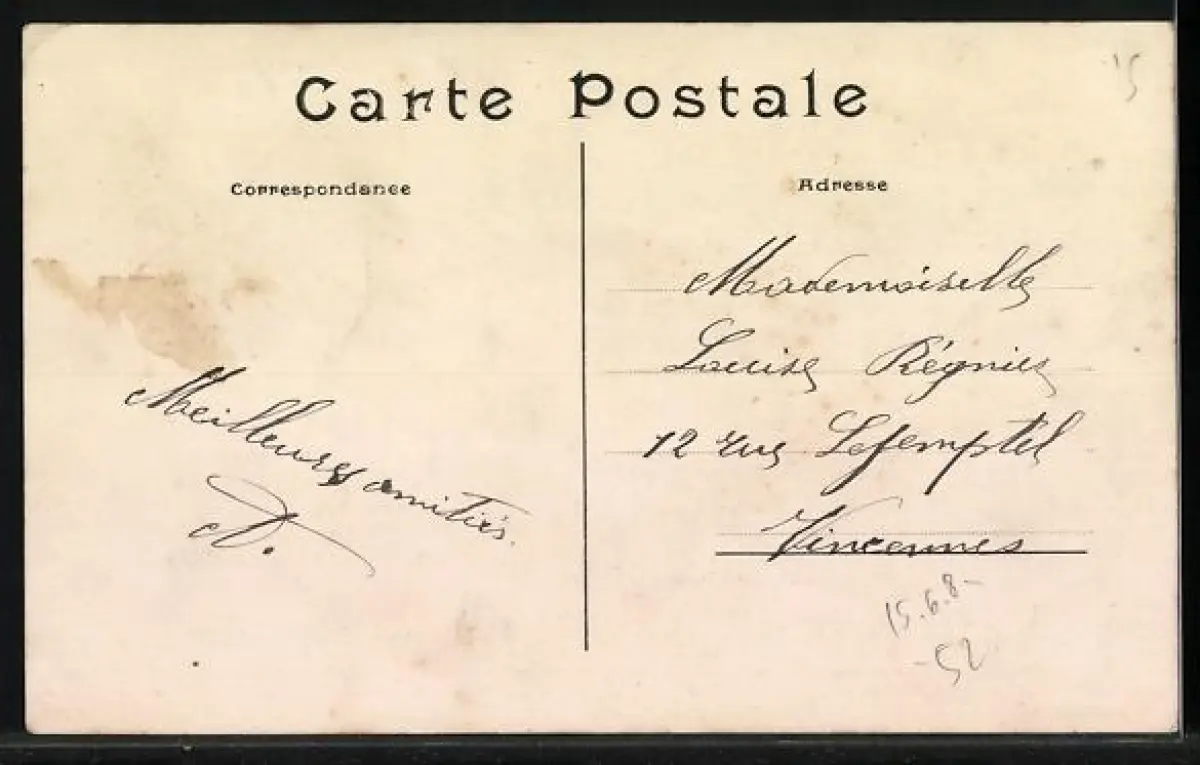 Carte Postale
Correspondance
Adresse
Meilleures amitiés.
A.
Mademoiselle
Louise Régnier
12 rue Lejemptel
Vincennes
15.6.8-
-52